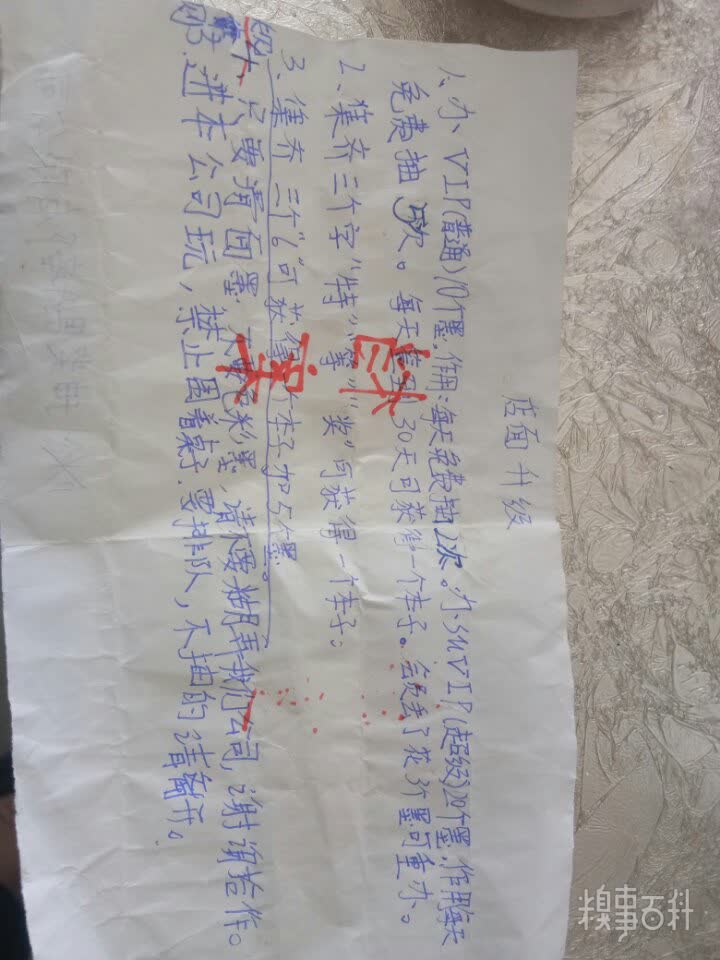 店面升级
1、办VIP(普通)10个墨,作用:每天免费抽2次。办SUVIP(超级)20个墨,作用每天
免费抽5次。每天签到30天可获得一个本子。会员丢了花3个墨可重办。
2、集齐三个字“特”“等”“奖”可获得一个本子;
3、集齐三个“6”可获得一个本子加5个墨。
只要滑面墨 不要色彩墨,请不要糊弄我们公司,谢谢合作。
进本公司玩,禁止围着桌子,要排队,不抽的请离开。
糗事百科